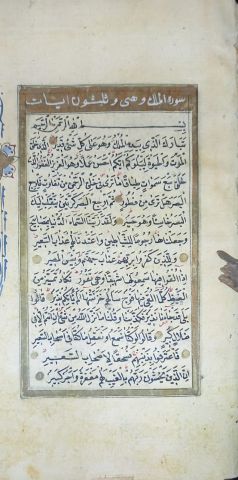 سورة الملك وهى و ثلثون ايات
بسم الله الرحمن الرحيم
تبارك الذى بيده الملك وهو على كل شئ قدير الذى خلق
الموت والحيوة ليبلوكم ايكم احسن عملا وهو العزيز الغفور الذى
خلق سبع سموات طباقا ما ترى فى خلق الرحمن من تفاوت فارجع
البصر هل ترى من فطور ثم ارجع البصر كرتين ينقلب اليك
البصر خاسئا وهو حسير ولقد زينا السماء الدنيا بمصابيح
وجعلناها رجوما للشياطين واعتدنا لهم عذاب السعير
وللذين كفروا بربهم عذاب جهنم وبئس المصير
اذا القوا فيها سمعوا لها شهيقا وهى تفور تكاد تميز من
الغيظ كلما القى فيها فوج سالهم خزنتها الم ياتكم نذير قالوا
بلى قد جاءنا نذير فكذبنا وقلنا ما نزل الله من شئ ان انتم الا فى
ضلال كبير وقالوا لو كنا نسمع او نعقل ما كنا فى اصحاب السعير
فاعترفوا بذنبهم فسحقا لاصحاب السعير
ان الذين يخشون ربهم بالغيب لهم مغفرة واجر كبير